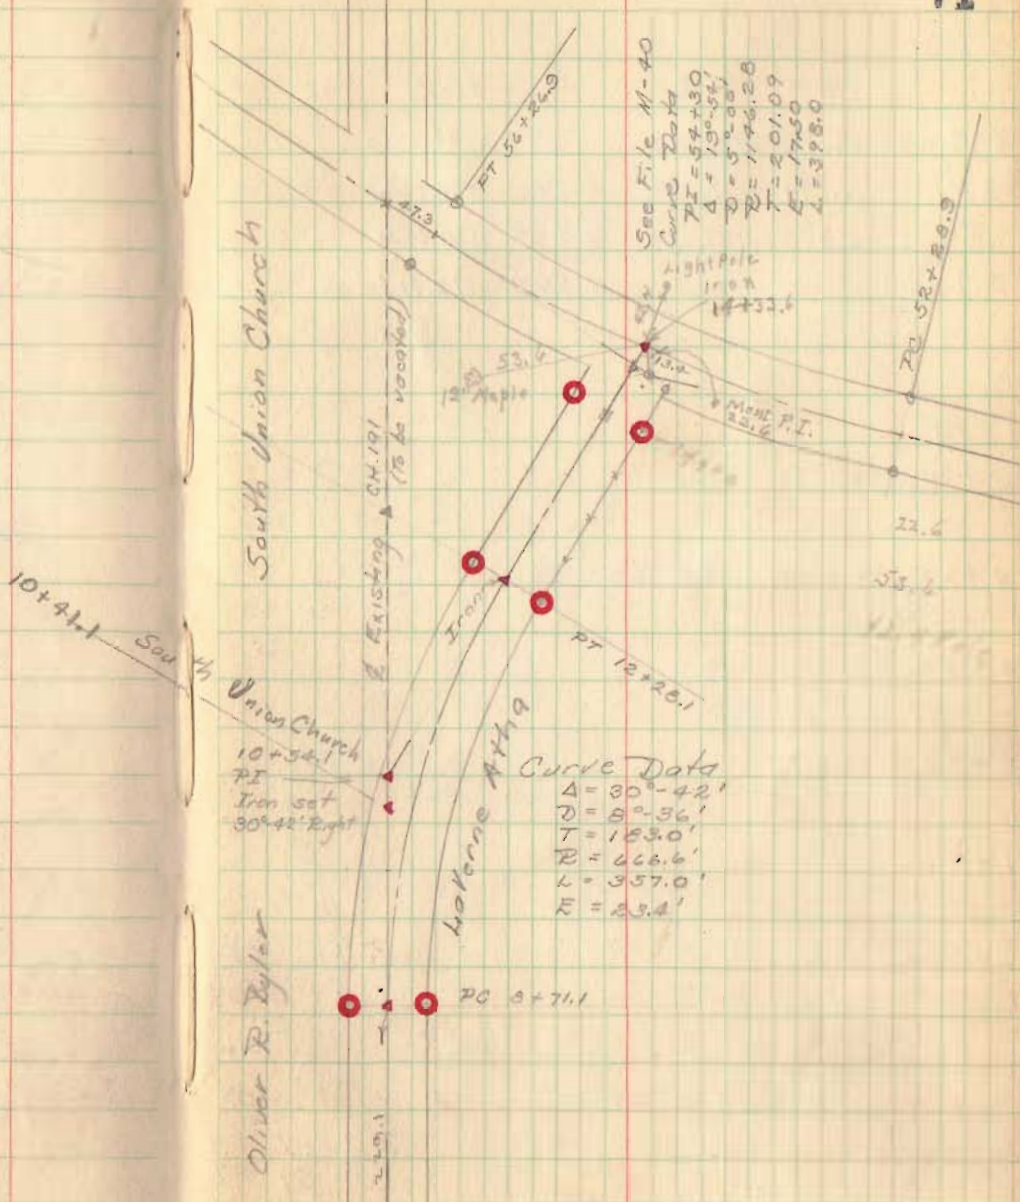 PT 56+26.9
See File M-40
Curve Data
PI = 54+30
Δ = 19°-54'
D = 5°-00'
R = 1146.28
T = 201.09
E = 17.50
L = 398.0
47.3
Light Pole
Iron
14+33.6
PC 52+28.9
53.6
12" Maple
13.4
Mont P.I.
22.6
South Union Church
℄ Existing CH.191
(To be vacated)
22.6
53.6
Iron
PT 12+28.1
10+41.1
South
Union Church
10+54.1
PI
Iron set
30°-42' Right
LaVerne Atha
Curve Data
Δ = 30°-42'
D = 8°-36'
T = 183.0'
R = 666.6'
L = 357.0'
E = 23.4'
Oliver R. Byler
PC 8+71.1
229.1